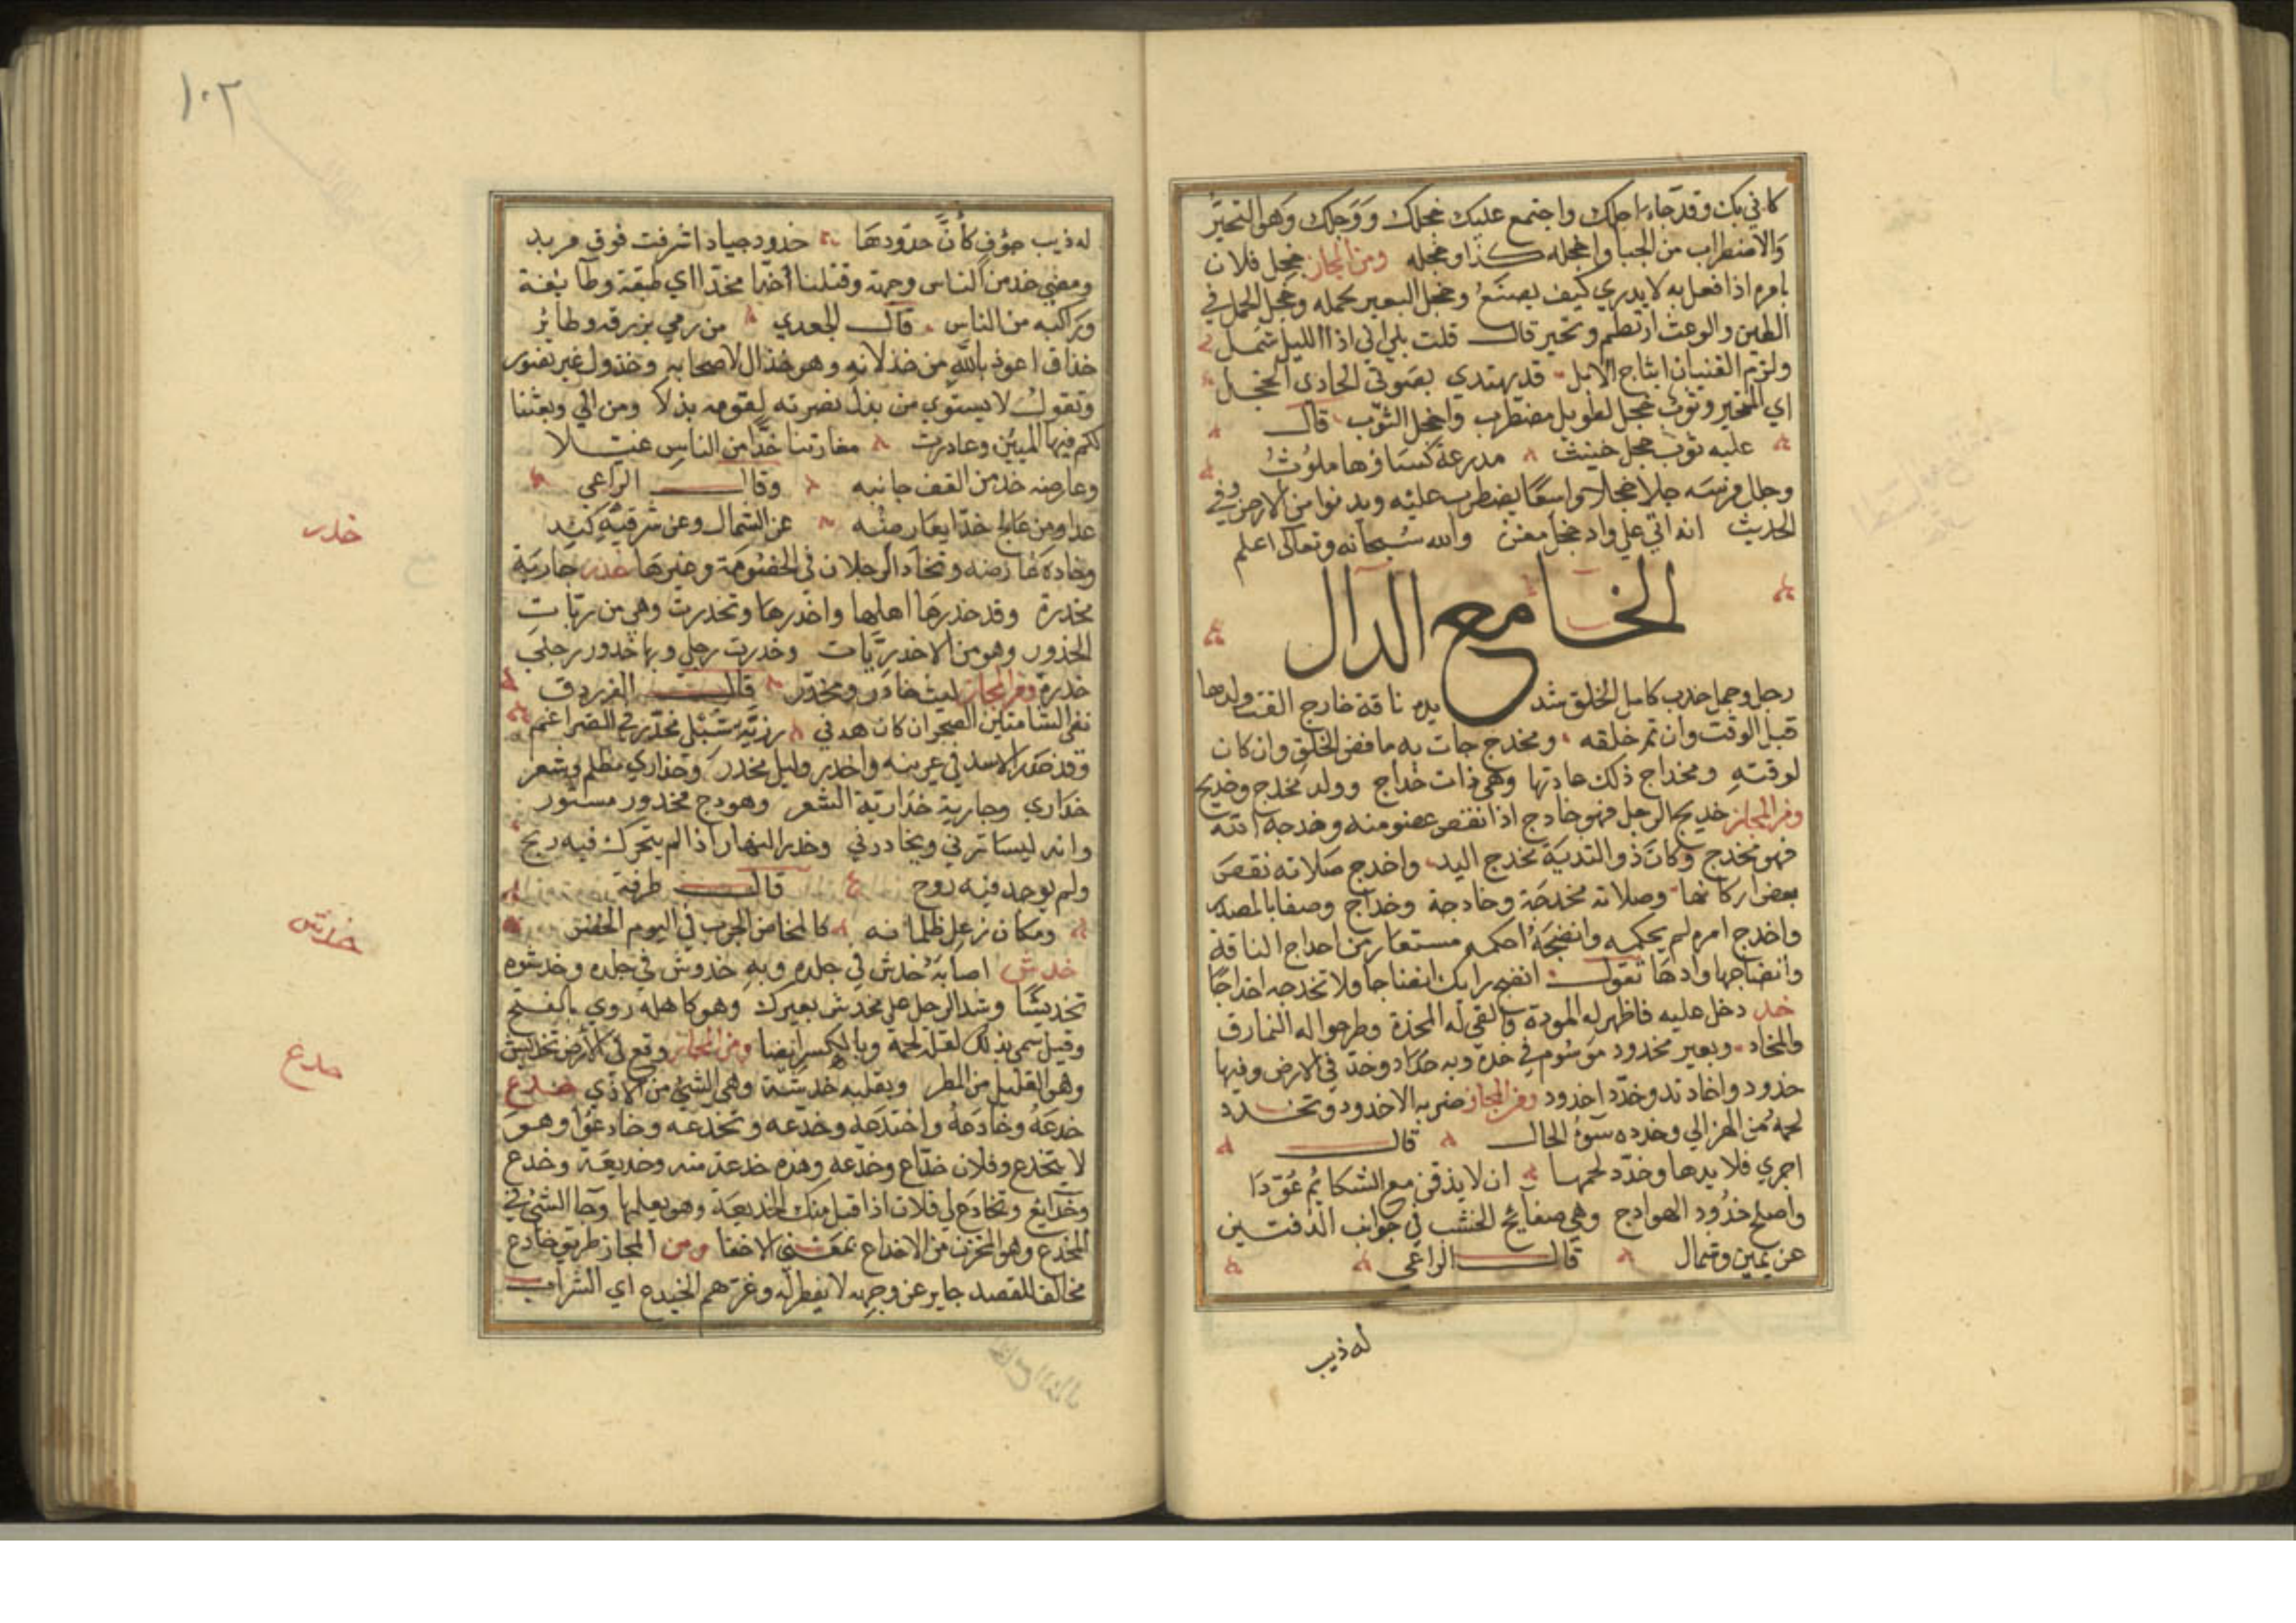 كاني بك وقد جاء اجلك واجتمع عليك خجلك ووجلك وهو التحير
والاضطراب من الحيا واخجله كذا وخجله ومن المجاز خجل فلان
بامره اذا فعل به لا يدري كيف يصنع وخجل البعير بحمله وخجل الحمل في
الطين والوعث ارتطم وتحير قال قلت بلي اني اذا الليل شمل
ولزم الفتيان اثباج الابل قد يهتدي بصوتي الحادي الخجل
اي المتحير وثوب خجل طويل مضطرب واخجل الثوب قال
عليه ثوب خجل خنيث مدرعة كساؤها ملوث
وجلل فرسه جلا خجلا واسعا يضطرب عليه ويدنوا من الارض وفي
الحديث انه اتي علي واد خجل مغن والله سبحانه وتعالى اعلم
الخا مع الدال
رجل وجمل خدب كامل الخلق شديده ناقة خارج القت ولدها
قبل الوقت وان تم خلقه ومخدج جات به ناقص الخلق وان كان
لوقته ومخداج ذلك عادتها وهي ذات خداج وولد مخدج وخديج
ومن المجاز خديج الرجل فهو خادج اذا نقص عضو منه وخدجه الله
فهو مخدج وكان ذو الثدية مخدج اليد واخدج صلاته نقص
بعض اركانها وصلاته مخدجة وخادجة وخداج وصفا بالمصدر
واخدج امره لم يحكمه وانضجه احكمه مستعار من اخداج الناقة
وانضاجها ولدها تقول انضج رايك انضاجا ولا تخدجه اخداجا
خد دخل عليه فاظهر له المودة والقى له المخدة وطرحوا له النمارق
والمخاد وبعير مخدود موسوم في خده وبه خداد وخد في الارض وفيها
خدود واخاديد وخدد اخدود ومن المجاز ضربه الاخدود وتخدد
لحمه من الهزال وخدده سوء الحال قال
اجري فلا يدها وخدد لحمها ان لا يذقن مع الشكائم عودا
واصلح خدود الهوادج وهي صفايح الخشب في جوانب الدفتين
عن يمين وشمال قال الراعي
له ذيب
١٠٢
له ذيب جوف كأن حدودها خدود جياد اشرفت فوق مربد
ومضى خد من الناس وجهته وقتلنا اخدا مخدا اي طبقة وطائفة
وراكبه من الناس قال الجعدي من رمي بزرقه وطائر
خذاق اعوذ بالله من خذلانه وهو خذال لاصحابه وخذول غير نصور
وتقول لا يستوي من بذل نصرته لقومه بذلا ومن الي وبعثنا
كم فيها المبين وغادرت مغارتنا خدا من الناس عيلا
وعارضه خد من القف جانبه وقال الراعي
غدا ومن عالج خد يعارضه عن الشمال وعن شرقيه كبد
وخاده عارضه وتخاد الرجلان في الخصومة وغيرها خدر جارية
مخدرة وقد خدرها اهلها واخدرها وتخدرت وهي من ربات
الخدور وهو من الاخدريات وخدرت رجلي وبها خدور رجلي
خدرة ومن المجاز ليث خادر ومخدر قال الفرزدق
نفى الشامتين الصخر ان كان هدني رزية شبلي مخدر في الضراغم
وقد خدر الاسد في عرينه واخدر وليل مخدر وخداري مظلم وشعر
خداري وجارية خدارية الشعر وهودج مخدور مستور
وانه ليساترني ويخادرني وخدر النهار اذا لم يتحرك فيه ريح
ولم يوجد فيه روح قال طرفة
ومكان زعل ظلمانه كالمخاض الجرب في اليوم الخدر
خدش اصابه خدش في جلده وبه خدوش في جلده وخدشوه
تخديشا وشد الرحل على مخدش بعيرك وهو كاهله روي بالفتح
وقيل سمي بذلك لقلة لحمه وبالكسر ايضا ومن المجاز وقع في الارض تخديش
وهو القليل من المطر وبقلبه خدشة وهي الشيء من الاذي خدع
خدعه وخادعه واختدعه وخدعه وتخدعه وخادعوا وهو
لا يتخدع وفلان خداع وخدعه وهذه خدعة منه وخديعة وخدع
وخدايع وتخادع لي فلان اذا قبل منك الخديعة وهو يعلمها وخبا الشيء في
المخدع وهو المخزن من الاخداع بمعنى الاخفا ومن المجاز طريق خادع
مخالف للمقصد جاير عن وجهه لا يفطن له وغرهم الخيدع اي السراب
خدر
خدش
خدع